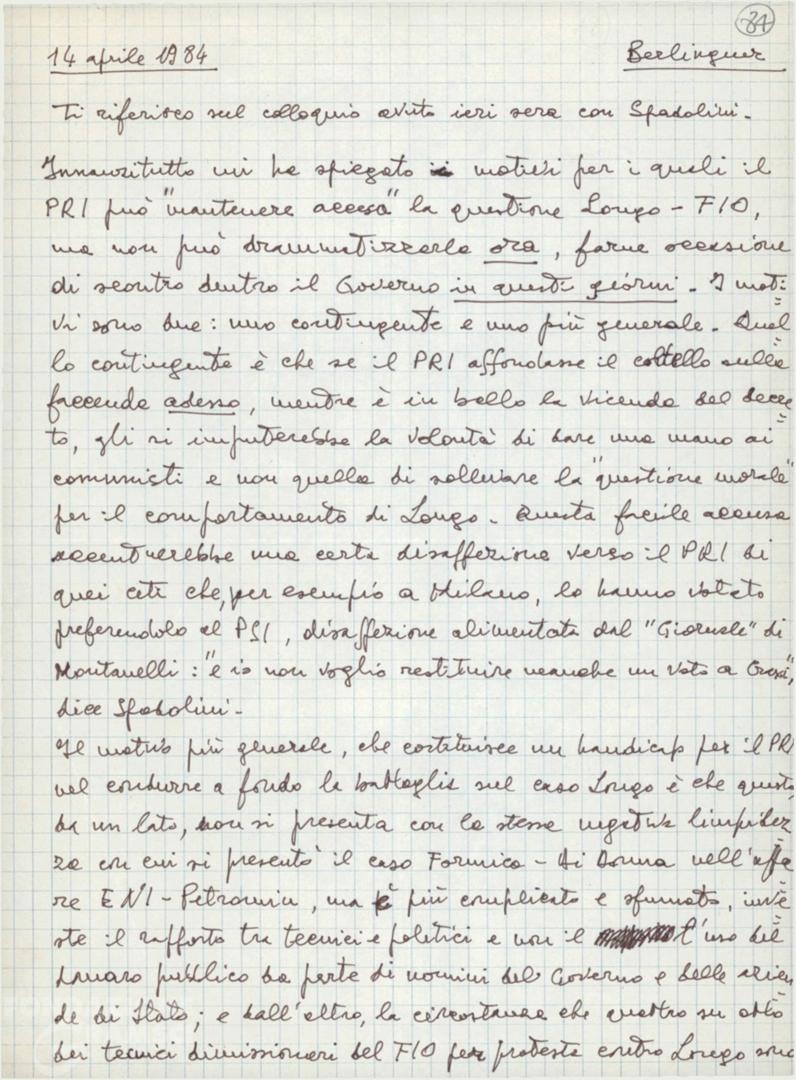 34
14 aprile 1984 Berlinguer
Ti riferisco sul colloquio avuto ieri sera con Spadolini.
Innanzitutto mi ha spiegato i motivi per i quali il
PRI può "mantenere accesa" la questione Longo - FIO,
ma non può drammatizzarla ora, farne occasione
di scontro dentro il Governo in questi giorni. I moti=
vi sono due: uno contingente e uno più generale. Quel=
lo contingente è che se il PRI affondasse il coltello nella
faccenda adesso, mentre è in ballo la vicenda del decre=
to, gli si imputerebbe la volontà di dare una mano ai
comunisti e non quella di sollevare la "questione morale"
per il comportamento di Longo. Questa facile accusa
accentuerebbe una certa disaffezione verso il PRI di
quei ceti che, per esempio a Milano, lo hanno votato
preferendolo al PSI, disaffezione alimentata dal "Giornale" di
Montanelli: "e io non voglio restituire neanche un voto a Craxi",
dice Spadolini.
Il motivo più generale, che costituisce un handicap per il PRI
nel condurre a fondo la battaglia sul caso Longo è che questo,
da un lato, non si presenta con la stessa negativa limpidez=
za con cui si presentò il caso Formica - Di Donna nell'affa=
re ENI - Petromin, ma è più complicato e sfumato, inve=
ste il rapporto tra tecnici e politici e non il l'uso del
denaro pubblico da parte di uomini del Governo e delle azien=
de di Stato; e dall'altro, la circostanza che quattro su otto
dei tecnici dimissionari del FIO per protesta contro Longo sono